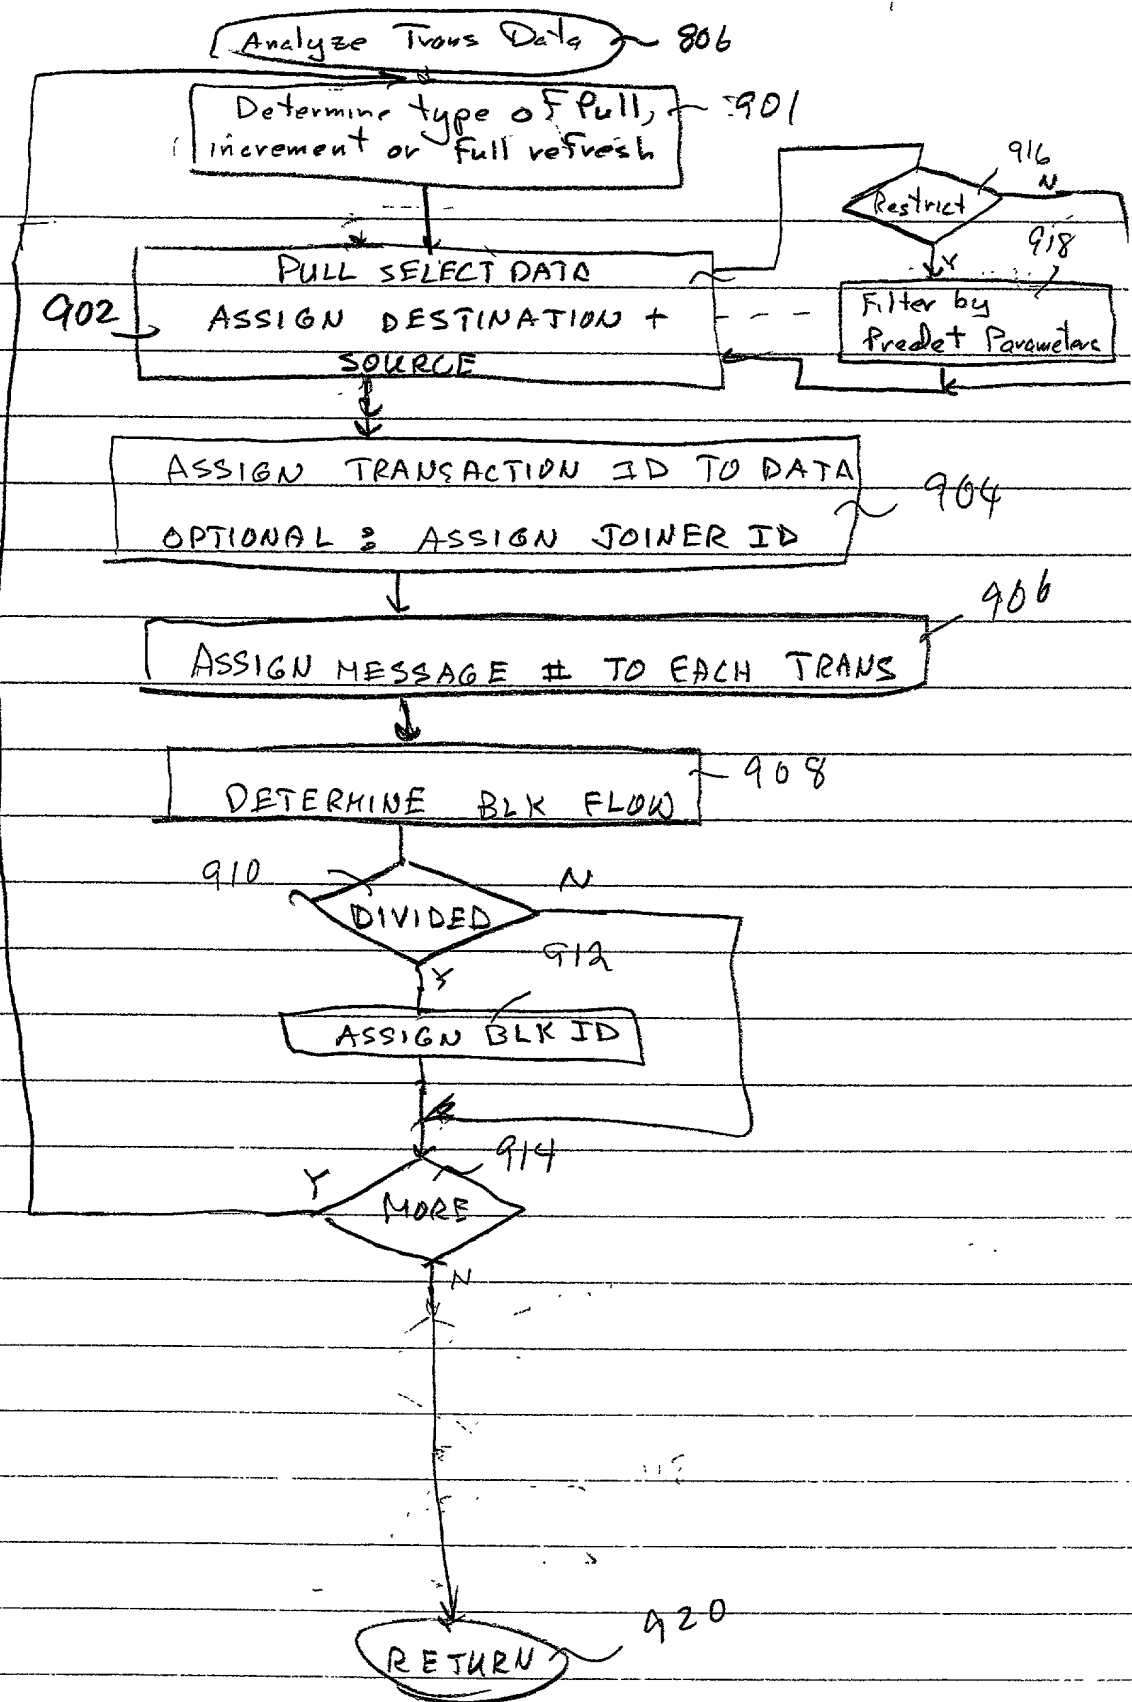 Analyze Trans Data 806
Determine type of Pull, 901
increment or full refresh
916
Restrict N
Y 918
Filter by
Predet Parameters
PULL SELECT DATA
902 ASSIGN DESTINATION +
SOURCE
ASSIGN TRANSACTION ID TO DATA
904
OPTIONAL : ASSIGN JOINER ID
906
ASSIGN MESSAGE # TO EACH TRANS
908
DETERMINE BLK FLOW
910 N
DIVIDED
912
Y
ASSIGN BLK ID
914
Y
MORE
N
920
RETURN